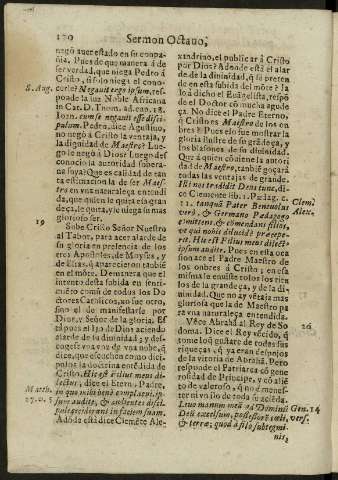 120
Sermon Octauo,
negò auer estado en su conpa-
ñia. Pues de que manera à de
ser verdad, que niega Pedro à
Cristo, si solo niega el cono-
S. Aug.
cerle? Negauit ergo ipsum, res-
ponde la luz Noble Africana
in Cat. D. Thom. ad. cap. 18.
Ioan. cum se negauit esse disci-
pulum. Pedro, dice Agustino,
no negò à Cristo la ventaja, y
la dignidad de Maestro? Luego
le negò à Dios? Luego des
conocio la autoridad sobera-
na loya? Que es calidad de tan
ta estimacion la de ser Maes-
tro en vna naturaleza entendi-
da, que quien le quita esa gran
deça, le quita, y le niega su mas
glorioso ser.
19
Sube Cristo Señor Nuestro
al Tabor, para acer alarde de
su gloria en presencia de los
tres Apostoles, de Moyses, y
de Elias, q̃ aparecieron tanbiẽ
en el mõte. De manera que el
intento desta subida en senti-
miẽto comũ de todos los Do
ctores Catolicos, no fue otro,
sino el de manifestarse por
Dios, y Señor de la gloria. Es
tà pues el Ijo de Dios aciendo
alarde de su diuinidad; y des-
cogese vna voz de vna nube, q̃
dice, que escuchen como dici-
pulos la doctrina entẽdida de
Cristo. Hic est Filius meus di-
Matth.
lectus; dice el Eterno, Padre,
17. v. 5
in quo mihi bene complacui, ip-
sum audite, & audientes disci-
puli ceciderunt in faciem suam.
Adõde està dice Clemẽte Ale-
xandrino, el publicar à Cristo
por Dios? Adonde està el alar
de de la diuinidad, q̃ se preten
de en esta subida del mõte? Ia
lo à dicho el Euagelista, respõ
de el Doctor cõ mucha agude
ça. No dice el Padre Eterno,
q̃ Cristo es Maestro de los on
bres? Pues eso fue mostrar la
gloria ilustre de su grãdeça, y
los blasones de su diuinidad.
Que à quien cõuiene la autori
dad de Maestro, tanbiẽ gozarà
todas las ventajas de grande.
Ibi nos tradidit Deus tunc, di-
ce Clemente lib. 1. Pædag. c.
Clem.
11. tanquã Pater Beneuolus
Alex.
verò, & Germano Pædagogo
cõmittens, & cõmendans filios,
ve qui nobis dilucidè præcepe-
rit. Hic est Filius meus dilect9
ipsum audite. Pues en esta ora
aclama el Padre Maestro de
los onbres à Cristo; en esa
misma le enuiste todos los tim
tos de la grandeça, y de la di
uinidad. Que no ay vẽtaja mas
gloriosa que la de Maestro pa
ra vna naturaleça entendida.
26
Vẽce Abrahã al Rey de So
doma. Dice el Rey vẽcido, q̃
tome lo q̃ gustare de todas sus
riqueças, q̃ ya eran despojos
de la vitoria de Abrahã. Pero
respõde el Patriarca cõ gene
rosidad de Principe, y cõ aliẽ
to de valeroso, q̃ no à menes-
ter ni vn ilo de toda su aciẽda.
Leuo manum meã ad Dominũ
Gen. 14
Deũ excelsum, possessorẽ cæli,
vers.
& terræ; quod à filo subtegmi-
nis,